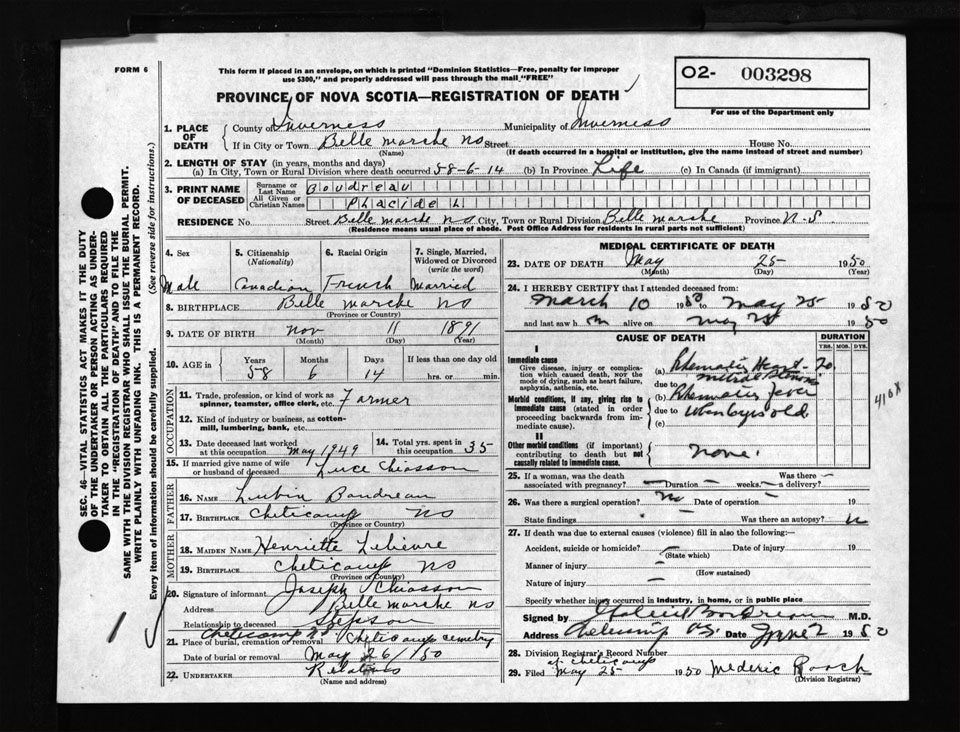 FORM 6
This form if placed in an envelope, on which is printed "Dominion Statistics—Free, penalty for improper
use $300," and properly addressed will pass through the mail "FREE"
O2- 003298
For use of the Department only
PROVINCE OF NOVA SCOTIA—REGISTRATION OF DEATH
1. PLACE OF DEATH
County of Inverness Municipality of Inverness
If in City or Town Belle marche NS Street House No.
(Name) (If death occurred in a hospital or institution, give the name instead of street and number)
2. LENGTH OF STAY (in years, months and days)
(a) In City, Town or Rural Division where death occurred 58-6-14 (b) In Province Life (c) In Canada (if immigrant)
3. PRINT NAME OF DECEASED
Surname or Last Name Boudreau
All Given or Christian Names Placide L
RESIDENCE No. Street Belle marche NS City, Town or Rural Division Belle marche Province N-S
(Residence means usual place of abode. Post Office Address for residents in rural parts not sufficient)
4. Sex 5. Citizenship (Nationality) 6. Racial Origin 7. Single, Married, Widowed or Divorced (write the word)
Male Canadian French Married
8. BIRTHPLACE Belle marche NS
(Province or Country)
9. DATE OF BIRTH Nov 11 1891
(Month) (Day) (Year)
10. AGE in Years Months Days If less than one day old
58 6 14 hrs. or min.
OCCUPATION
11. Trade, profession, or kind of work as spinner, teamster, office clerk, etc. Farmer
12. Kind of industry or business, as cotton-mill, lumbering, bank, etc.
13. Date deceased last worked at this occupation May 1949 14. Total yrs. spent in this occupation 35
15. If married give name of wife or husband of deceased Luce Chiasson
FATHER
16. NAME Lubin Boudreau
17. BIRTHPLACE Cheticamp NS
(Province or Country)
MOTHER
18. MAIDEN NAME Henriette Lelievre
19. BIRTHPLACE Cheticamp NS
(Province or Country)
20. Signature of informant Joseph Chiasson
Address Belle marche NS
Relationship to deceased Stepson
21. Place of burial, cremation or removal Cheticamp NS Cheticamp cemetry
Date of burial or removal May 26/50
22. UNDERTAKER Relations
(Name and address)
MEDICAL CERTIFICATE OF DEATH
23. DATE OF DEATH May 25- 1950
(Month) (Day) (Year)
24. I HEREBY CERTIFY that I attended deceased from:
March 10 1950 to May 25 1950
and last saw h m alive on May 25 1950
CAUSE OF DEATH DURATION
YRS. MOS. DYS.
I
Immediate cause
Give disease, injury or complication which caused death, NOT the mode of dying, such as heart failure, asphyxia, asthenia, etc.
(a) Rhematic Heart- 20
mitral
due to
Morbid conditions, if any, giving rise to immediate cause (stated in order proceeding backwards from immediate cause).
(b) Rhematic fever
due to when boy old.
(c)
410X
II
Other morbid conditions (if important) contributing to death but not causally related to immediate cause.
None.
25. If a woman, was the death associated with pregnancy? Duration weeks Was there a delivery?
26. Was there a surgical operation? No Date of operation 19
State findings Was there an autopsy?
27. If death was due to external causes (violence) fill in also the following:—
Accident, suicide or homicide? Date of injury 19
(State which)
Manner of injury
(How sustained)
Nature of injury
Specify whether injury occurred in industry, in home, or in public place
Signed by M.D.
Address Cheticamp NS. Date June 2 1950
28. Division Registrar's Record Number
at Cheticamp
29. Filed May 25 1950 Mederic Roach
(Division Registrar)
SEC. 46—VITAL STATISTICS ACT MAKES IT THE DUTY
OF THE UNDERTAKER OR PERSON ACTING AS UNDER-
TAKER TO OBTAIN ALL THE PARTICULARS REQUIRED
IN THE "REGISTRATION OF DEATH" AND TO FILE THE
SAME WITH THE DIVISION REGISTRAR WHO SHALL ISSUE THE BURIAL PERMIT.
WRITE PLAINLY WITH UNFADING INK. THIS IS A PERMANENT RECORD.
Every item of information should be carefully supplied. (See reverse side for instructions.)